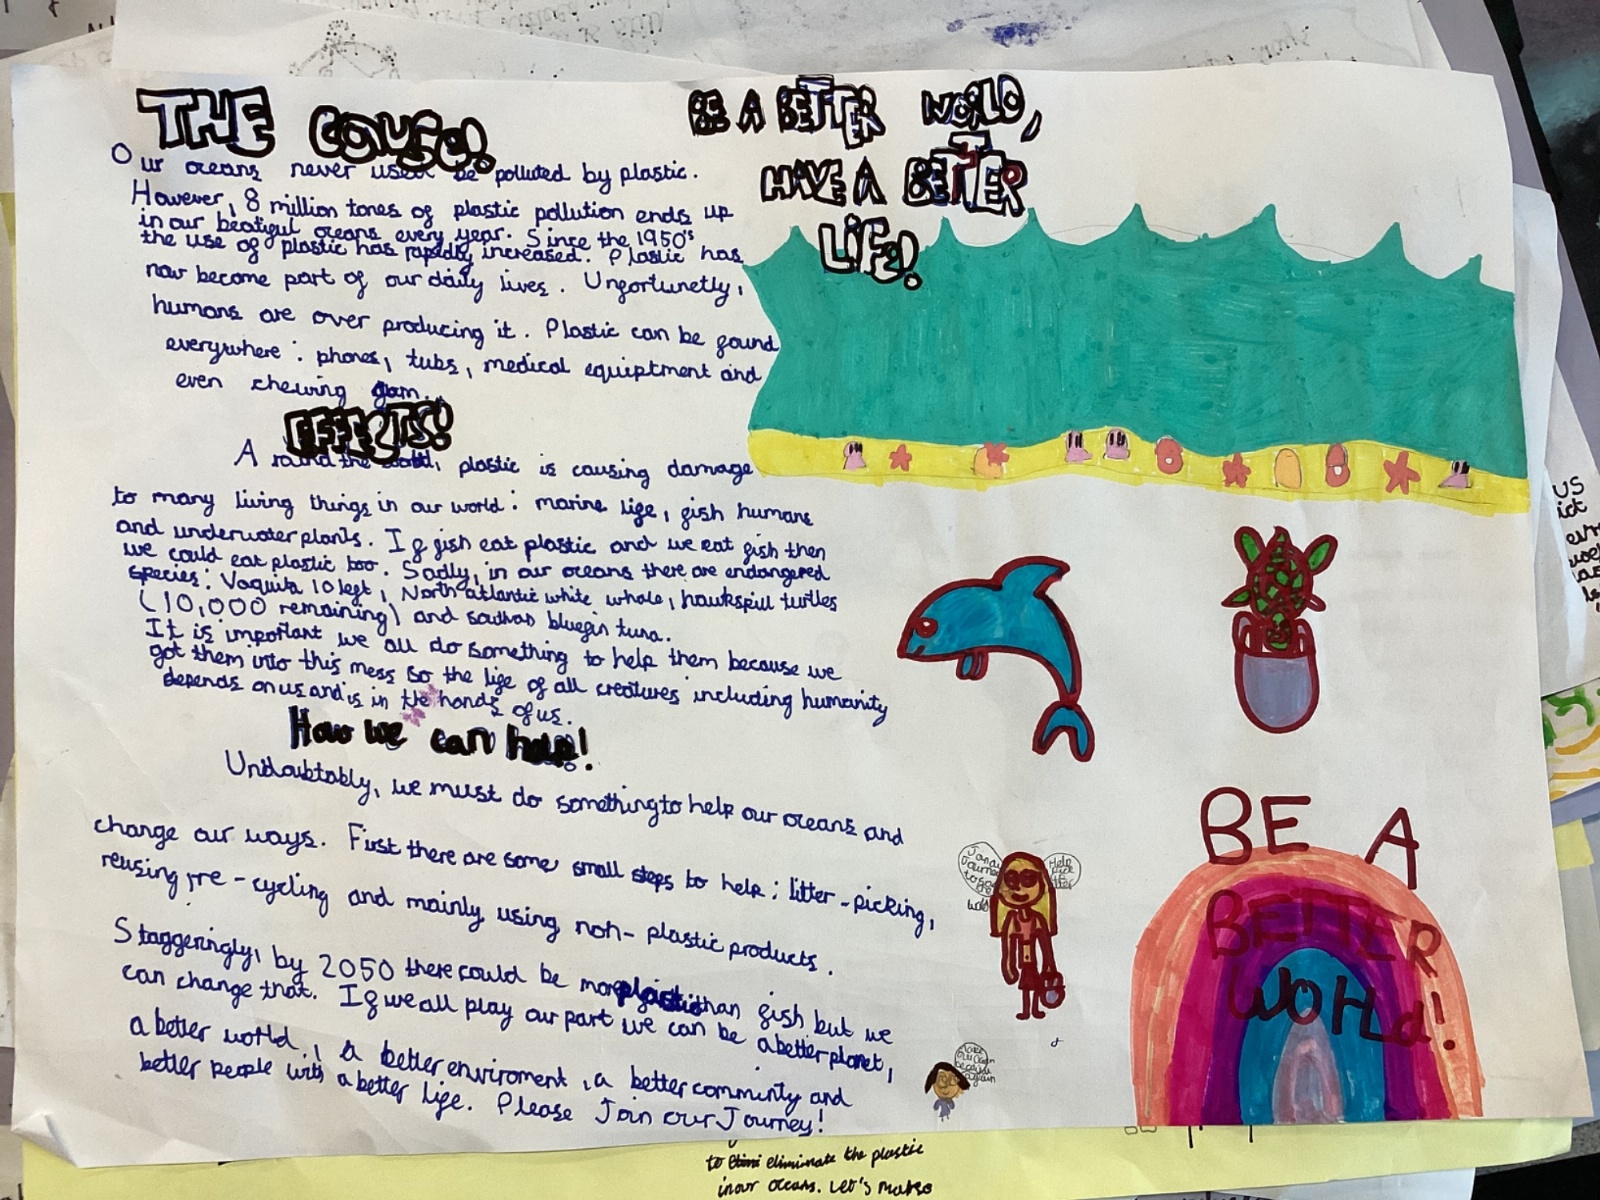 THE COUSE!
Our oceans never used be polluted by plastic.
However, 8 million tones of plastic pollution ends up
in our beatiful oceans every year. Since the 1950's
the use of plastic has rapidly increased. Plastic has
now become part of our daily lives. Ungortunetly,
humans are over producing it. Plastic can be found
everywhere: phones, tubs, medical equiptment and
even chewing gam..
EFFECTS!
Around the world, plastic is causing damage
to many living things in our world: marine life, fish humans
and underwater plants. If fish eat plastic and we eat fish then
we could eat plastic too. Sadly, in our oceans there are endangered
species: Vaquita 10 left, North atlantic white whale, hawkspill turtles
(10,000 remaining) and southan bluefin tuna.
It is important we all do something to help them because we
got them into this mess so the life of all creatures including humanity
depends on us and is in the hands of us.
How we can help!
Undoubtably, we must do something to help our oceans and
change our ways. First there are some small steps to help: litter-picking,
reusing, re-cycling and mainly using non-plastic products.
Staggeringly, by 2050 there could be more plastic than fish but we
can change that. If we all play our part we can be a better planet,
a better world, a better enviroment, a better comminty and
better people with a better life. Please Join our Journey!
BE A BETTER WORLD,
HAVE A BETTER
LIFE!
Help
pick
BE A
BETTER
WORLd!
to eliminate the plastic
in our oceans. Let's make
us